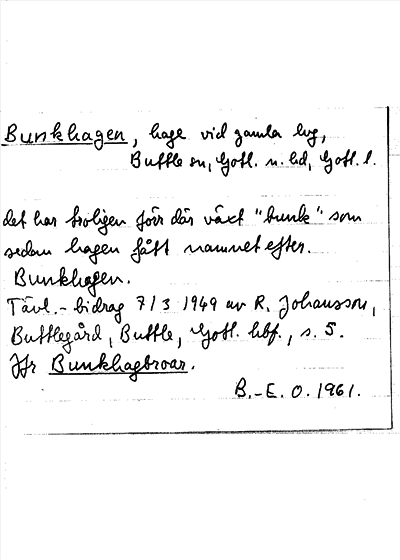 Bunkhagen, hage vid gamla lvg,
Buttle sn, Gotl. n. hd, Gotl. l.
det har troligen förr där växt "bunk" som
sedan hagen fått namnet efter.
Bunkhagen.
Tävl.-bidrag 7/3 1949 av R. Johansson,
Buttlegård, Buttle, Gotl. hbf., s. 5.
Jfr Bunkhagbroar.
B.-E. O. 1961.